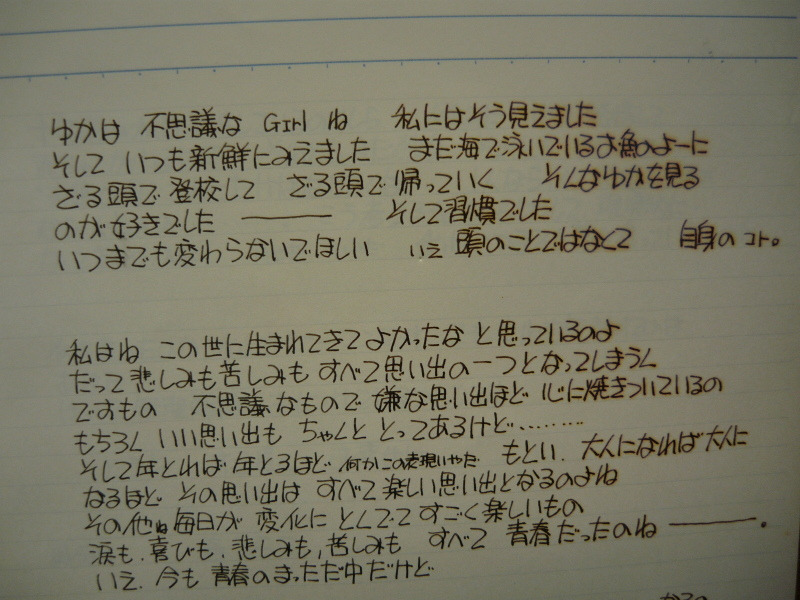 ゆかは 不思議な Girl ね 私にはそう見えました
そして いつも新鮮にみえました まだ海で泳いでいるお魚のよーに
ざる頭で 登校して ざる頭で 帰っていく そんなゆかを見る
のが好きでした ――― そして習慣でした
いつまでも変わらないでほしい いえ 頭のことではなくて 自身のコト。
私はね この世に生まれてきて よかったな と思っているのよ
だって悲しみも苦しみも すべて思い出の一つとなってしまうん
ですもの 不思議なもので 嫌な思い出ほど 心に焼きついているの
もちろん いい思い出も ちゃんと とってあるけど………
そして年とれば 年とるほど 何かこの表現いやだ もとい、大人になれば大人に
なるほど その思い出は すべて楽しい思い出となるのよね
その他ね毎日が 変化に とんでて すごく楽しいもの
涙も、喜びも、悲しみも、苦しみも すべて 青春だったのね ―――。
いえ、今も 青春のまっただ中だけど